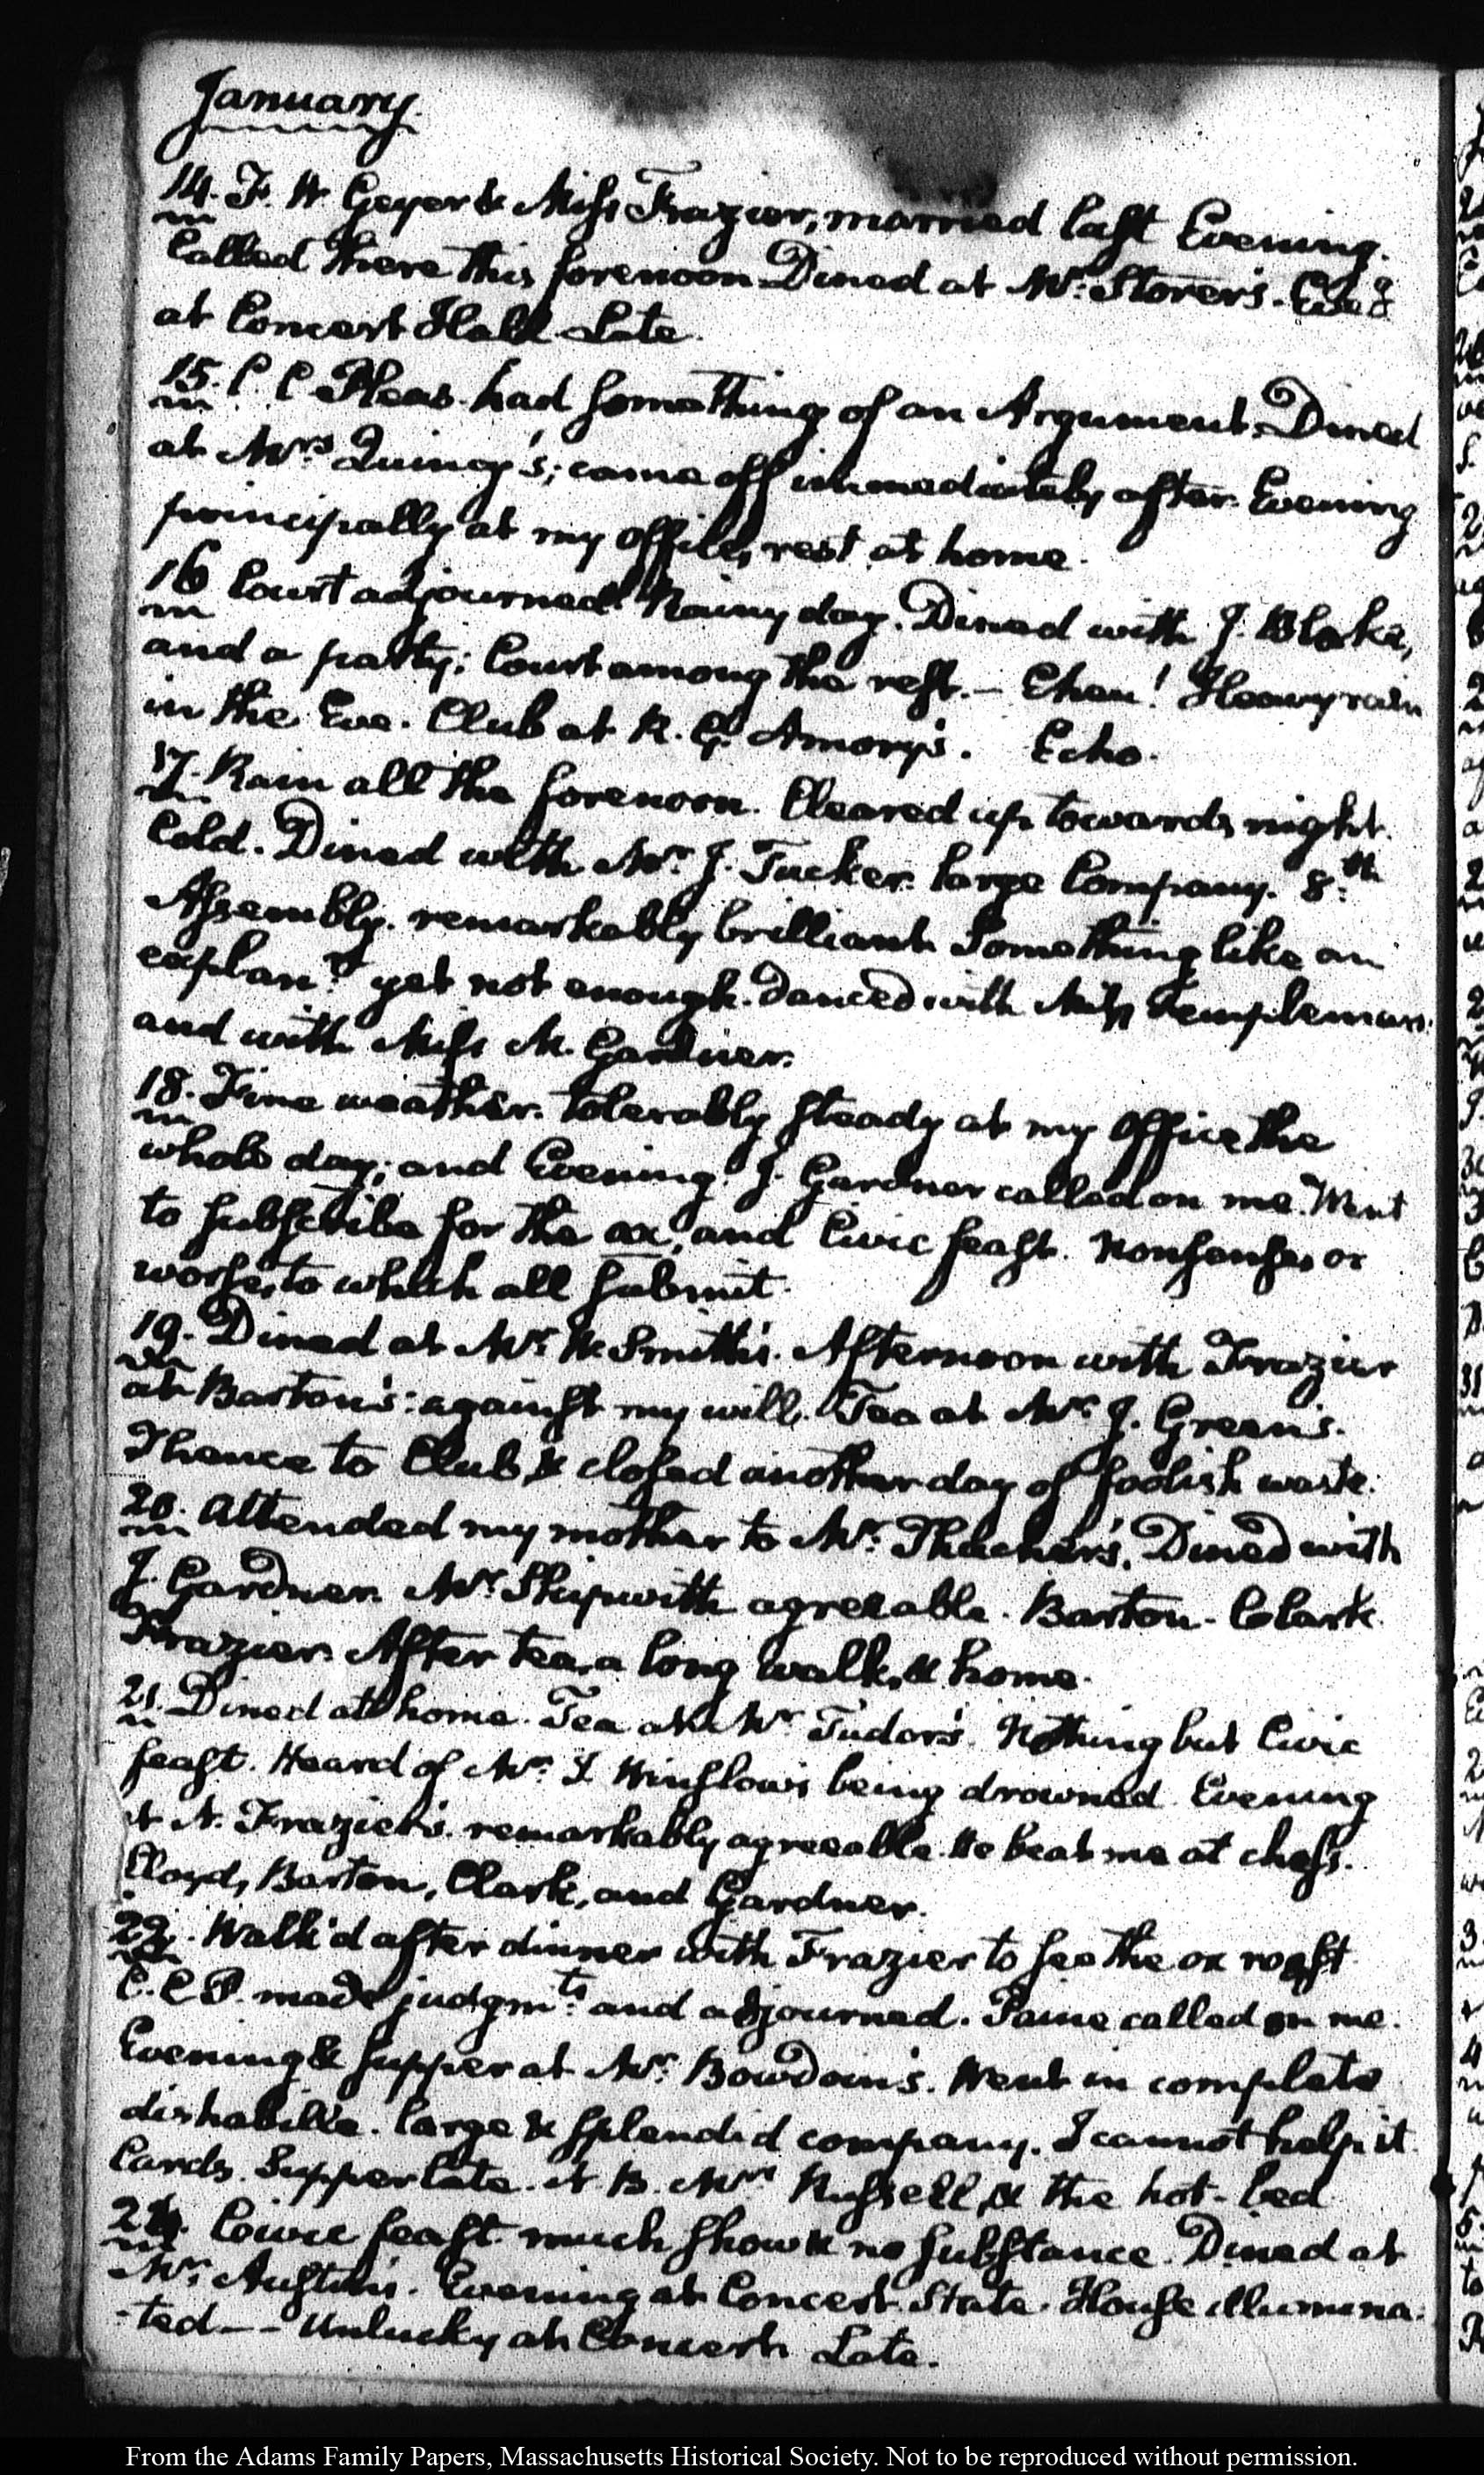 January.
14. F. W Geyer & Miss Frazier, married last Evening.
Called there this forenoon. Dined at Mr. Storer's. Eveg
at Concert Hall. Late.
15. C. C Pleas. had something of an Argument. Dined
at Mrs Quincy's; came off immediately after. Evening
principally at my office, rest at home.
16 Court adjourned. Rainy day. Dined with J. Blake,
and a party; Court among the rest. — Eheu! Heavy rain
in the Eve. Club at R. G. Amory's. Echo.
17. Rain all the forenoon. Cleared up towards night.
Cold. Dined with Mr. J. Tucker. large Company. 8.th
Assembly. remarkably brilliant. Something like an
explann. yet not enough. Danced with Miss Templeman.
and with Miss M. Gardner.
18. Fine weather. tolerably steady at my Office the
whole day; and Evening. J. Gardner called on me. Went
to subscribe for the ox, and Civic feast. Nonsense, or
worse, to which all submit.
19. Dined at Mr. W. Smith's. Afternoon with Frazier
at Barton's: against my will. Tea at Mr. J. Green's.
Thence to Club, & closed another day of foolish waste.
20. Attended my mother to Mr. Thacher's. Dined with
J. Gardner. Mr. Skipwith agreeable. Barton. Clark.
Frazier. After tea, a long walk, & home.
21. Dined at home. Tea at Mr Tudor's. Nothing but Civic
feast. Heard of Mr. I Winslow's being drowned. Evening
at N. Frazier's. remarkably agreeable. He beat me at chess.
Lloyd, Barton, Clark, and Gardner.
22. Walk'd after dinner with Frazier to see the ox roast
C. C P. made judgmts. and adjourned. Paine called on me.
Evening & supper at Mr. Bowdoin's. Went in complete
dishabille. large & splendid company. I cannot help it
Cards. Supper late. N. B. Mrs Russell, & the hot-bed
24. Civic feast. much show & no substance. Dined at
Mr. Austin's. Evening at Concert. State-House illumina-
-ted — Unlucky at Concert. Late.
From the Adams Family Papers, Massachusetts Historical Society. Not to be reproduced without permission.